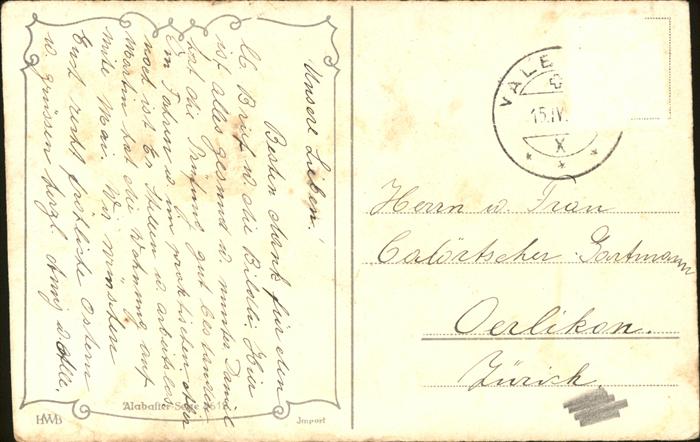 Unsere Lieben!
Besten dank für den
lb. Brief u. die Bildli. Hier
ist alles gesund u. munter. Daniel
hat die Prüfung gut bestanden
im Fahren u. im praktischen. Aber
noch ist Er Stellen u. arbeitslos
Martin hat die Wohnung auf
mitte Mai. Wir wünschen
Euch recht fröhliche Ostern
u. grüssen herzl. Anny u. Alle.
HWB
Alabaster-Serie
Import
VALE
15.IV.
X
Herrn u. Frau
Calörtscher-Gartmann
Oerlikon.
Zürich